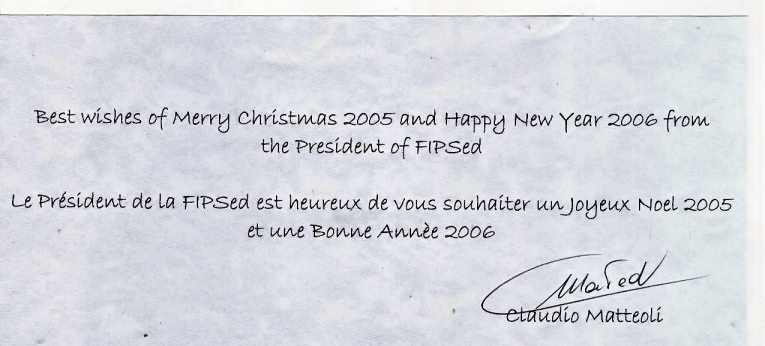 Best wishes of Merry Christmas 2005 and Happy New Year 2006 from
the President of FIPSed
Le Président de la FIPSed est heureux de vous souhaiter un Joyeux Noel 2005
et une Bonne Annèe 2006
Claudio Matteoli